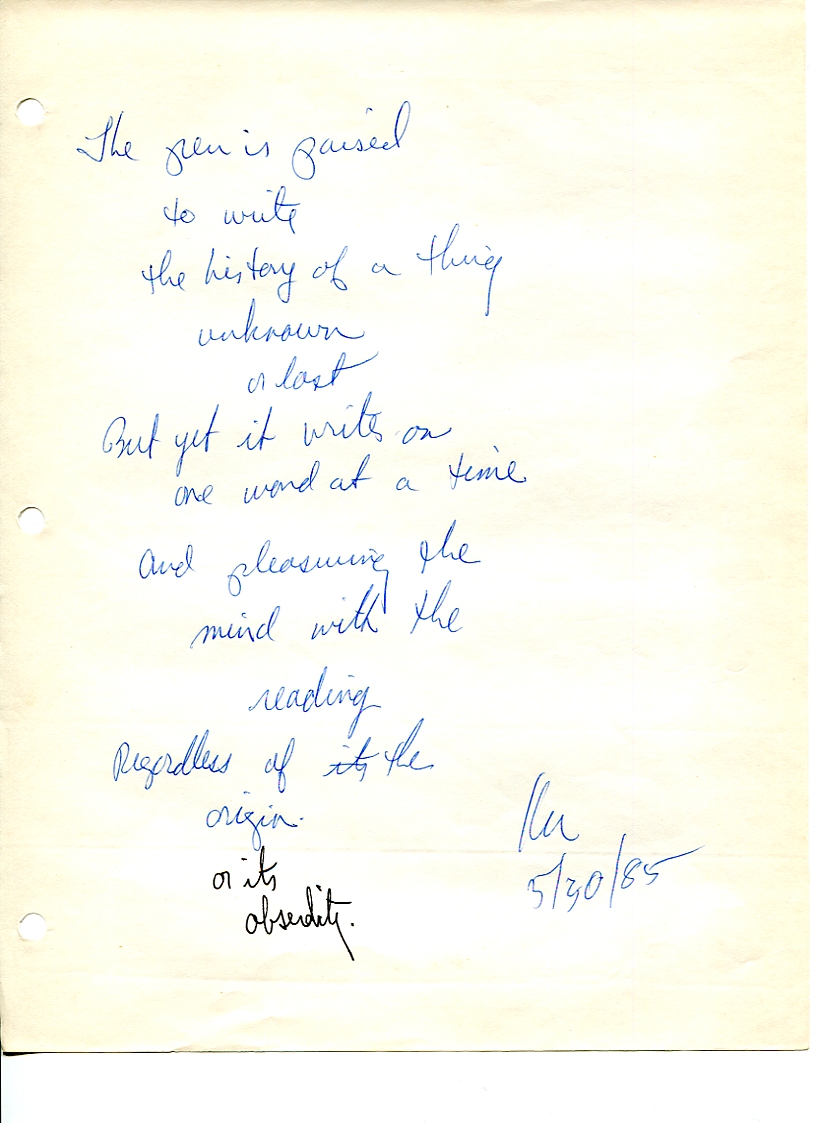 The pen is paised
to write
the history of a thing
unknown
or lost
But yet it writes on
one word at a time
And pleasuring the
mind with the
reading
Regardless of its the
origin.
or its
obserdity.
5/30/85